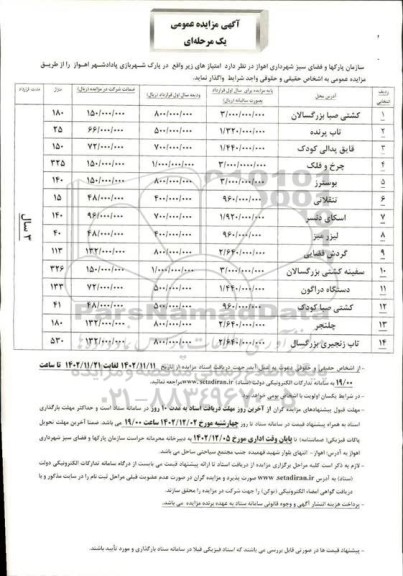 آگهی مزایده عمومی
یک مرحله‌ای
سازمان پارکها و فضای سبز شهرداری اهواز در نظر دارد امتیاز های زیر واقع در پارک شهربازی پادادشهر اهواز را از طریق
مزایده عمومی به اشخاص حقیقی و حقوقی واجد شرایط واگذار نماید.
ردیف انتخابی آدرس محل پایه مزایده برای سال اول قرارداد بصورت سالیانه (ریال) ودیعه سال اول قرارداد (ریال) ضمانت شرکت در مزایده (ریال) متراژ مدت قرارداد
۱ کشتی صبا بزرگسالان ۳/۰۰۰/۰۰۰/۰۰۰ ۸۰۰/۰۰۰/۰۰۰ ۱۵۰/۰۰۰/۰۰۰ ۱۸۰
۲ تاب پرنده ۱/۳۲۰/۰۰۰/۰۰۰ ۵۰۰/۰۰۰/۰۰۰ ۶۶/۰۰۰/۰۰۰ ۲۵
۳ قایق پدالی کودک ۱/۴۴۰/۰۰۰/۰۰۰ ۷۰۰/۰۰۰/۰۰۰ ۷۲/۰۰۰/۰۰۰ ۱۵۰
۴ چرخ و فلک ۳/۰۰۰/۰۰۰/۰۰۰ ۱/۰۰۰/۰۰۰/۰۰۰ ۱۵۰/۰۰۰/۰۰۰ ۳۲۵
۵ بوسترز ۳/۰۰۰/۰۰۰/۰۰۰ ۸۰۰/۰۰۰/۰۰۰ ۱۵۰/۰۰۰/۰۰۰ ۱۴۰
۶ تنقلاتی ۹۶۰/۰۰۰/۰۰۰ ۴۰۰/۰۰۰/۰۰۰ ۴۸/۰۰۰/۰۰۰ ۱۵
۷ اسکای دنسر ۱/۹۲۰/۰۰۰/۰۰۰ ۷۰۰/۰۰۰/۰۰۰ ۹۶/۰۰۰/۰۰۰ ۱۴۰
۳ سال
۸ لیزر میز ۹۶۰/۰۰۰/۰۰۰ ۴۰۰/۰۰۰/۰۰۰ ۴۸/۰۰۰/۰۰۰ ۴۰
۹ گردش فضایی ۲/۶۴۰/۰۰۰/۰۰۰ ۸۰۰/۰۰۰/۰۰۰ ۱۳۲/۰۰۰/۰۰۰ ۱۱۳
۱۰ سفینه کشتی بزرگسالان ۳/۰۰۰/۰۰۰/۰۰۰ ۱/۰۰۰/۰۰۰/۰۰۰ ۱۵۰/۰۰۰/۰۰۰ ۳۲۶
۱۱ دستگاه دراگون ۱/۴۴۰/۰۰۰/۰۰۰ ۵۰۰/۰۰۰/۰۰۰ ۷۲/۰۰۰/۰۰۰ ۱۳۳
۱۲ کشتی صبا کودک ۹۶۰/۰۰۰/۰۰۰ ۵۰۰/۰۰۰/۰۰۰ ۴۸/۰۰۰/۰۰۰ ۴۱
۱۳ چلنجر ۲/۶۴۰/۰۰۰/۰۰۰ ۸۰۰/۰۰۰/۰۰۰ ۱۳۲/۰۰۰/۰۰۰ ۱۸۰
۱۴ تاب زنجیری بزرگسال ۲/۶۴۰/۰۰۰/۰۰۰ ۸۰۰/۰۰۰/۰۰۰ ۱۳۲/۰۰۰/۰۰۰ ۵۳۰
- از اشخاص حقیقی و حقوقی دعوت به عمل آید، جهت دریافت اسناد مزایده از تاریخ ۱۴۰۲/۱۱/۱۱ لغایت ۱۴۰۲/۱۱/۲۱ تا ساعت
۱۹/۰۰ به سامانه تدارکات الکترونیکی دولت (ستاد) www.setadiran.ir مراجعه نمایند.
- در شرایط یکسان اولویت با اشخاص بومی خواهد بود.
- مهلت قبول پیشنهادهای مزایده گران از آخرین روز مهلت دریافت اسناد به مدت ۱۰ روز در سامانه ستاد است و حداکثر مهلت بارگذاری
اسناد به همراه پیشنهاد قیمت در سامانه ستاد تا روز چهارشنبه مورخ ۱۴۰۲/۱۲/۰۲ ساعت ۱۹/۰۰ می باشد. ضمنا آخرین مهلت تحویل
پاکات فیزیکی( ضمانتنامه) تا پایان وقت اداری مورخ ۱۴۰۲/۱۲/۰۵ به دبیرخانه محرمانه حراست سازمان پارکها و فضای سبز شهرداری
اهواز به آدرس: اهواز- انتهای بلوار شهید فهمیده جنب مجتمع سیاحتی ساحل می باشد.
- لازم به ذکر است کلیه مراحل برگزاری مزایده از دریافت اسناد تا ارائه پیشنهاد قیمت می بایست از درگاه سامانه تدارکات الکترونیکی دولت
(ستاد) به آدرس www.setadiran.ir صورت پذیرد و مزایده گران در صورت عدم عضویت قبلی مراحل ثبت نام را در سایت مذکور و
دریافت گواهی امضاء الکترونیکی (توکن) را جهت شرکت در مزایده را محقق سازند.
- پرداخت هزینه انتشار آگهی و وجوه قانونی سامانه ستاد به عهده برنده مزایده می باشد.
- پیشنهاد قیمت ها در صورتی قابل بررسی می باشند که اسناد فیزیکی قبلا در سامانه ستاد بارگذاری و مورد تأیید باشند.
ParsNamadData
۰۲۱-۸۸۳۴۹۶۷۰-۵